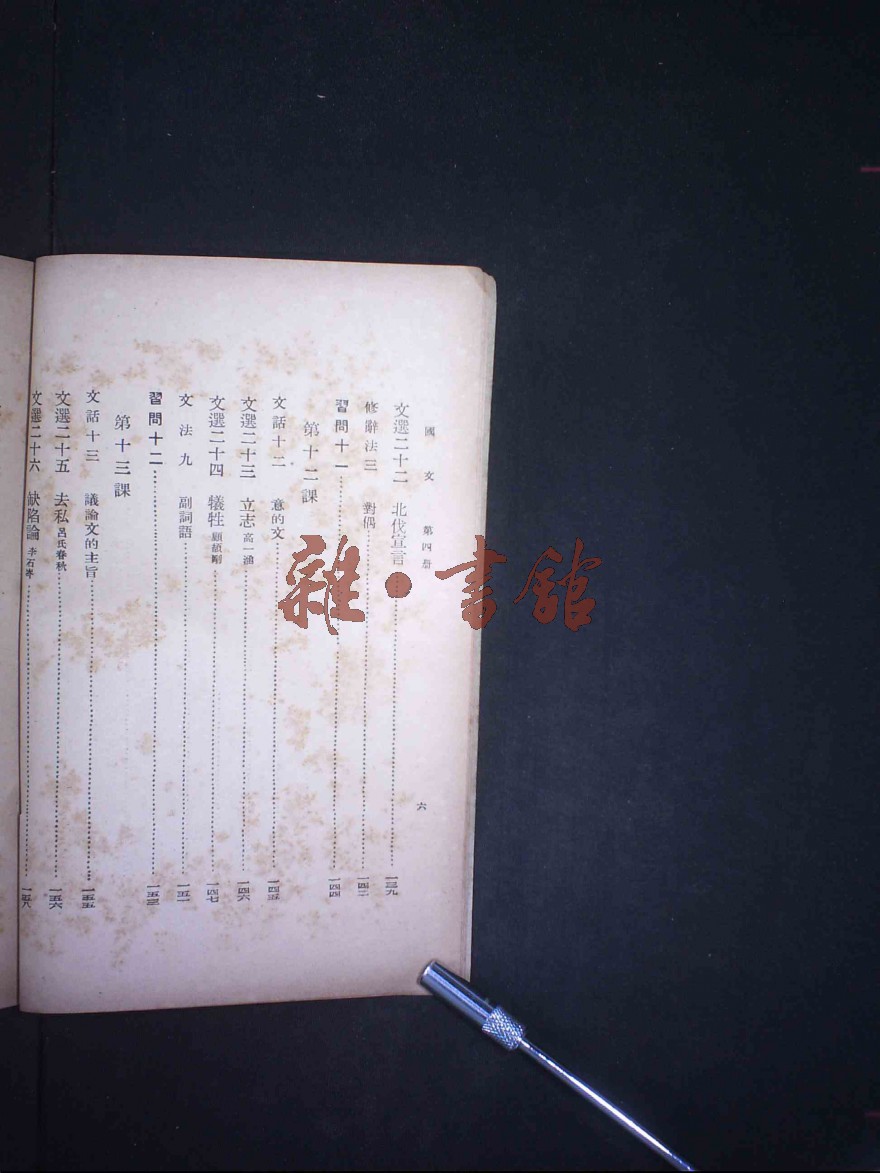 國文 第四册 六
文選二十二 北伐宣言 一三九
修辭法三 對偶 一四二
習問十一 一四四
第十二課
文話十二 意的文 一四五
文選二十三 立志 高一涵 一四六
文選二十四 犧牲 顧頡剛 一四七
文法九 副詞語 一五一
習問十二 一五三
第十三課
文話十三 議論文的主旨 一五五
文選二十五 去私 呂氏春秋 一五六
文選二十六 缺陷論 李石岑 一五八
雜·書館